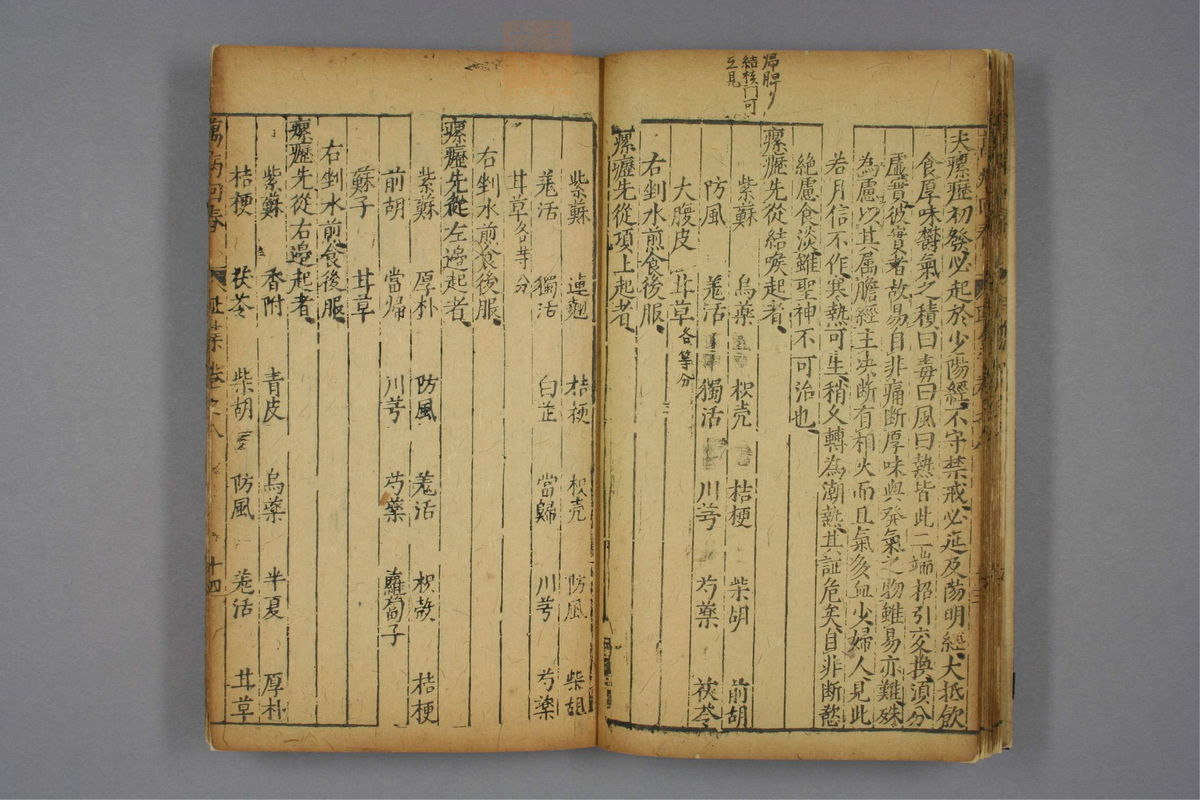 帰脾ノ
結核門可
互見
夫瘰癧初發必起於少陽經不守禁戒必延及陽明經大抵飲
食厚味欝氣之積曰毒曰風曰熱皆此二端招引交換湏分
虛實彼實者故易自非痛断厚味與發氣之物雖易亦難殊
為慮以其属膽經主决断有相火而且氣多血少婦人見此
若月信不作寒熱可生稍久轉為潮熱其証危矣自非断慾
絶慮食淡雖聖神不可治也
瘰癧先從結喉起者
紫蘇 烏藥 枳壳 桔梗 柴胡 前胡
防風 羗活 獨活 川芎 芍藥 茯苓
大腹皮 甘草各等分
右剉水煎食後服
瘰癧先從項上起者
紫蘇 連翹 桔梗 枳壳 防風 柴胡
羗活 獨活 白芷 當歸 川芎 芍藥
甘草各等分
右剉水煎食後服
瘰癧先從左邉起者
紫蘇 厚朴 防風 羗活 枳殻 桔梗
前胡 當帰 川芎 芍藥 蘿蔔子
蘇子 甘草
右剉水煎食後服
瘰癧先從右邉起者
紫蘇 香附 青皮 烏藥 半夏 厚朴
桔梗 茯苓 柴胡 防風 羗活 甘草
萬病回春 卷之八 十四